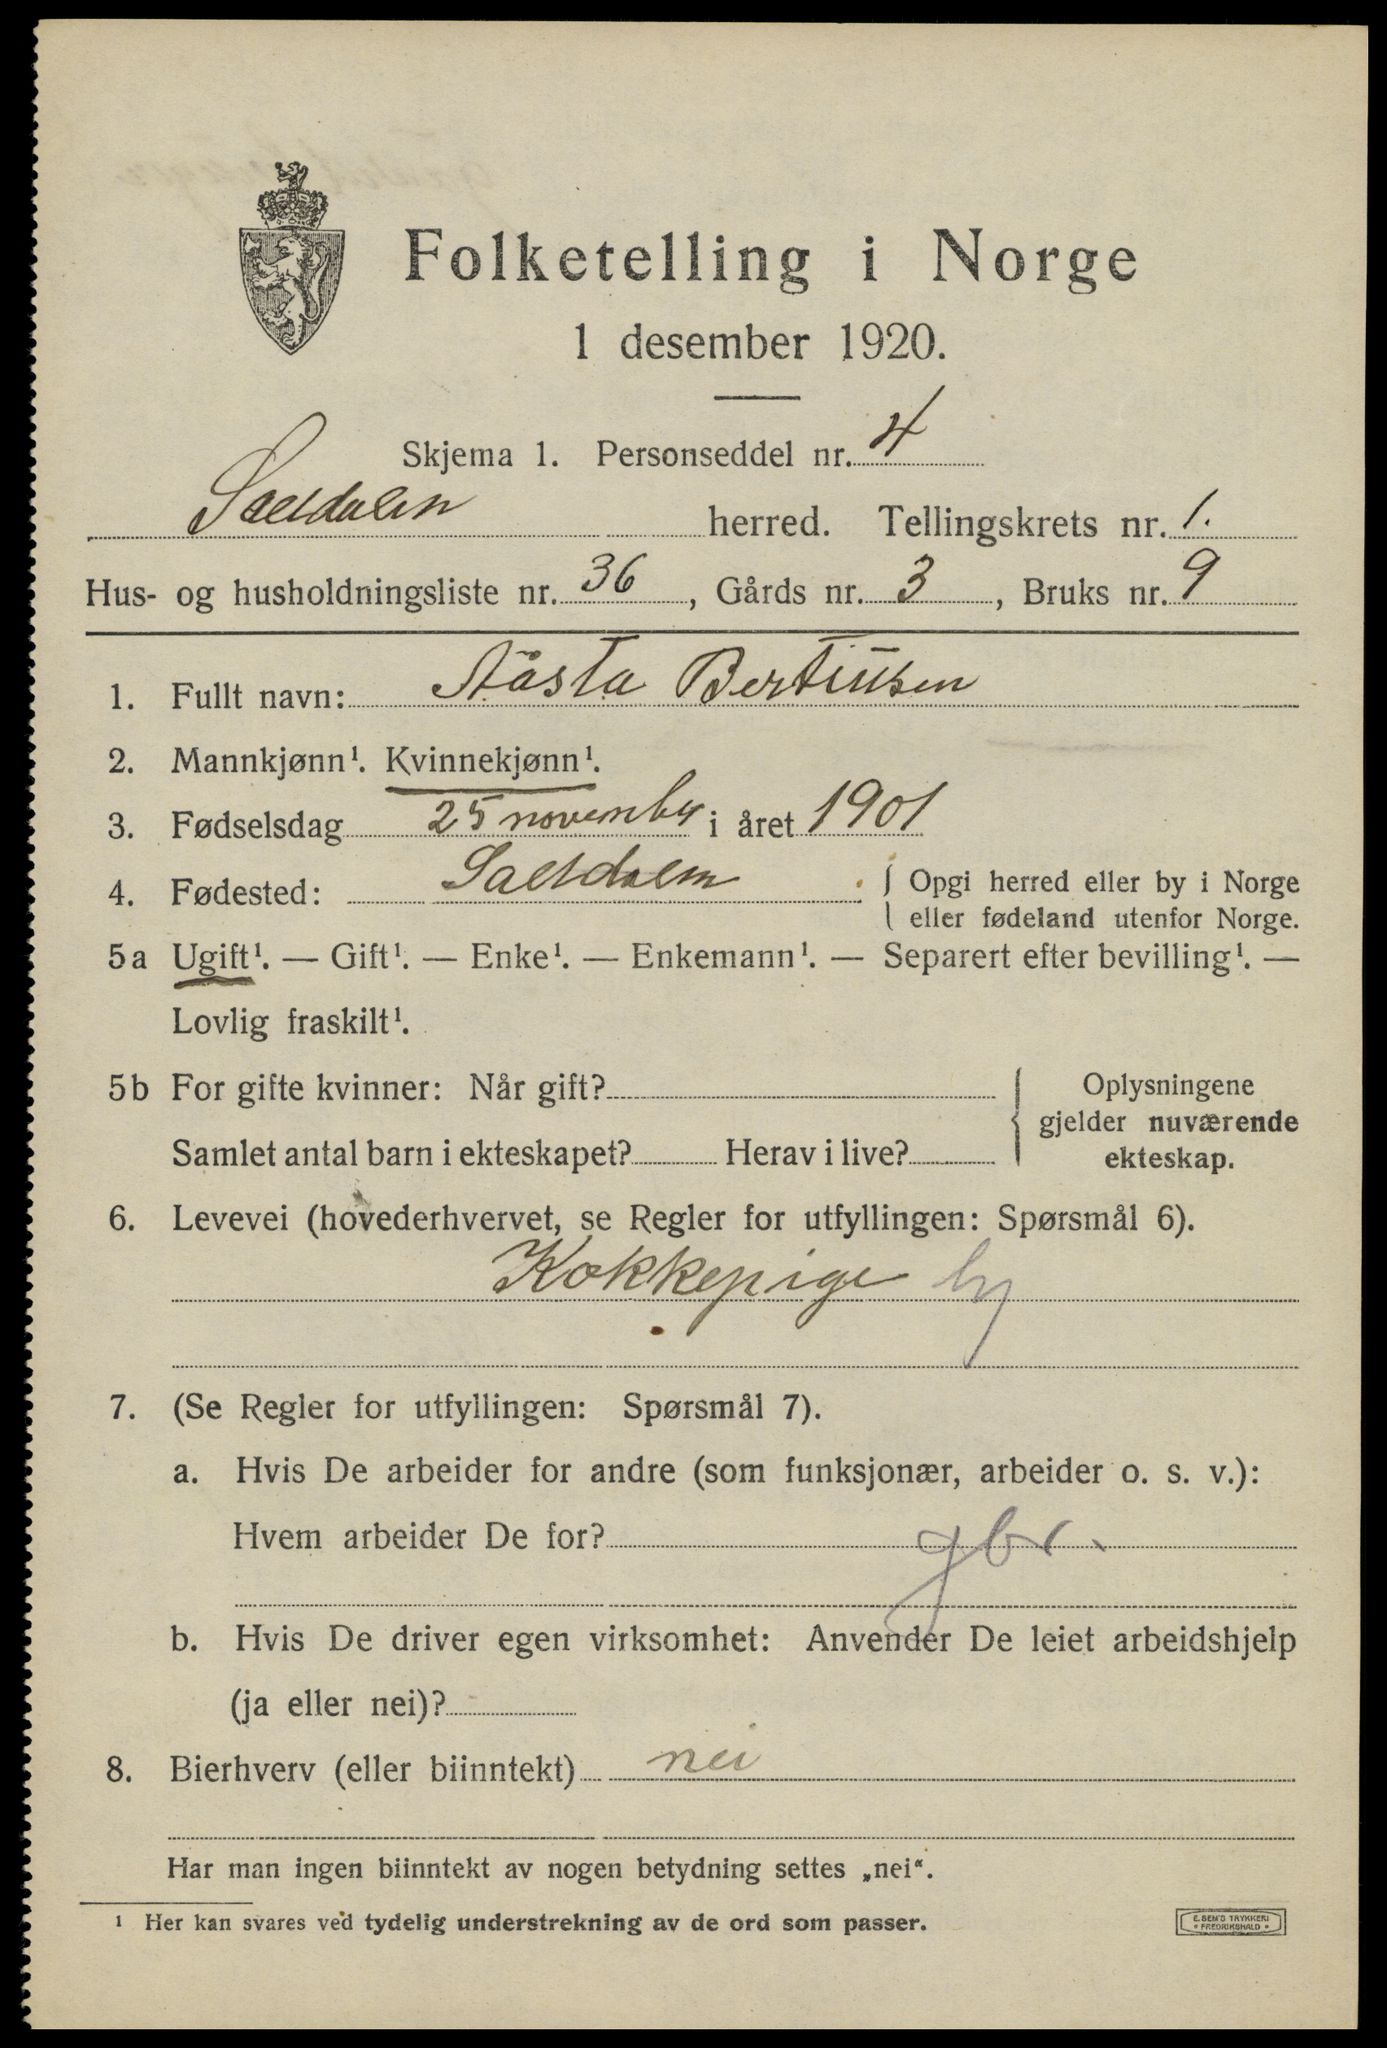 Folketelling i Norge
1 desember 1920.
Skjema 1. Personseddel nr. 4
Saltdalen herred. Tellingskrets nr. 1.
Hus- og husholdningsliste nr. 36, Gårds nr. 3, Bruks nr. 9
1. Fullt navn: Aasta Bertiusen
2. Mannkjønn¹. Kvinnekjønn¹.
3. Fødselsdag 25 november i året 1901
4. Fødested: Saltdalen { Opgi herred eller by i Norge
eller fødeland utenfor Norge.
5a Ugift¹. — Gift¹. — Enke¹. — Enkemann¹. — Separert efter bevilling¹. —
Lovlig fraskilt¹.
5b For gifte kvinner: Når gift?
Samlet antal barn i ekteskapet? Herav i live?
{ Oplysningene
gjelder nuværende
ekteskap.
6. Levevei (hovederhvervet, se Regler for utfyllingen: Spørsmål 6).
Kokkepige hy
7. (Se Regler for utfyllingen: Spørsmål 7).
a. Hvis De arbeider for andre (som funksjonær, arbeider o. s. v.):
Hvem arbeider De for? gbr.
b. Hvis De driver egen virksomhet: Anvender De leiet arbeidshjelp
(ja eller nei)?
8. Bierhverv (eller biinntekt) nei
Har man ingen biinntekt av nogen betydning settes „nei“.
¹ Her kan svares ved tydelig understrekning av de ord som passer.
E. SEM'S TRYKKERI
* FREDRIKSHALD *